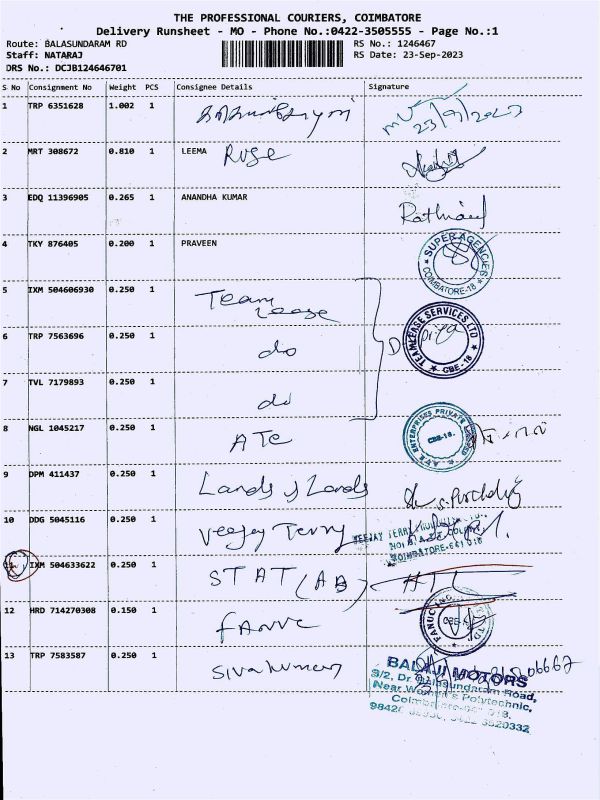 THE PROFESSIONAL COURIERS, COIMBATORE
Delivery Runsheet - MO - Phone No.:0422-3505555 - Page No.:1
Route: BALASUNDARAM RD
RS No.: 1246467
Staff: NATARAJ
RS Date: 23-Sep-2023
DRS No.: DCJB124646701
S No Consignment No Weight PCS Consignee Details Signature
1 TRP 6351628 1.002 1
23/9/2023
2 MRT 308672 0.810 1 LEEMA Rose
3 EDQ 11396905 0.265 1 ANANDHA KUMAR
4 TKY 876405 0.200 1 PRAVEEN
SUPER AGENCIES COIMBATORE-18
5 IXM 504606930 0.250 1 Team Lease
6 TRP 7563696 0.250 1 do
TEAMLEASE SERVICES LTD CBE-18
7 TVL 7179893 0.250 1 do
8 NGL 1045217 0.250 1 ATE
ENTERPRISES PRIVATE LIMITED CBE-18.
9 DPM 411437 0.250 1 Lands y Lands
10 DDG 5045116 0.250 1 Veejay Terry
VEEJAY TERRY
COIMBATORE-641 018
11 IXM 504633622 0.250 1 STAT (AB)
12 HRD 714270308 0.150 1 FANUC
FANUC
13 TRP 7583587 0.250 1 Sivakumar
BALAJI MOTORS
3/2, Dr. Balasundaram Road,
Near Women's Polytechnic,